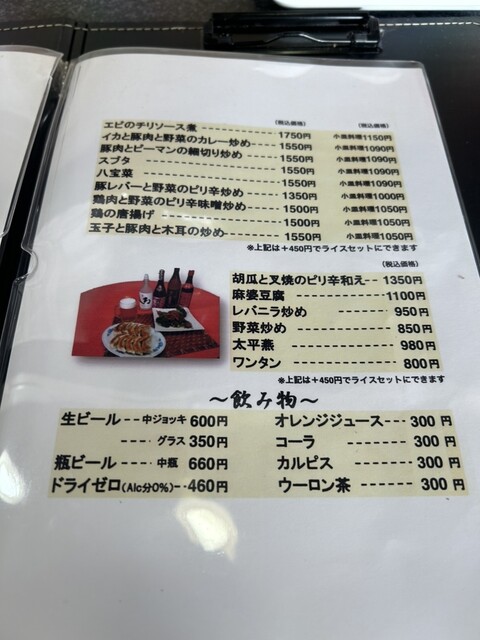 (税込価格) (税込価格)
エビのチリソース煮 1750円 小皿料理1150円
イカと豚肉と野菜のカレー炒め 1550円 小皿料理1090円
豚肉とピーマンの細切り炒め 1550円 小皿料理1090円
スブタ 1550円 小皿料理1090円
八宝菜 1550円 小皿料理1090円
豚レバーと野菜のピリ辛炒め 1350円 小皿料理1000円
鶏肉と野菜のピリ辛味噌炒め 1500円 小皿料理1050円
鶏の唐揚げ 1500円 小皿料理1050円
玉子と豚肉と木耳の炒め 1550円 小皿料理1050円
※上記は+450円でライスセットにできます
(税込価格)
胡瓜と叉焼のピリ辛和え 1350円
麻婆豆腐 1100円
レバニラ炒め 950円
野菜炒め 850円
太平燕 980円
ワンタン 800円
※上記は+450円でライスセットにできます
〜飲み物〜
生ビール 中ジョッキ 600円 オレンジジュース 300円
グラス 350円 コーラ 300円
瓶ビール 中瓶 660円 カルピス 300円
ドライゼロ(Alc分0%) 460円 ウーロン茶 300円